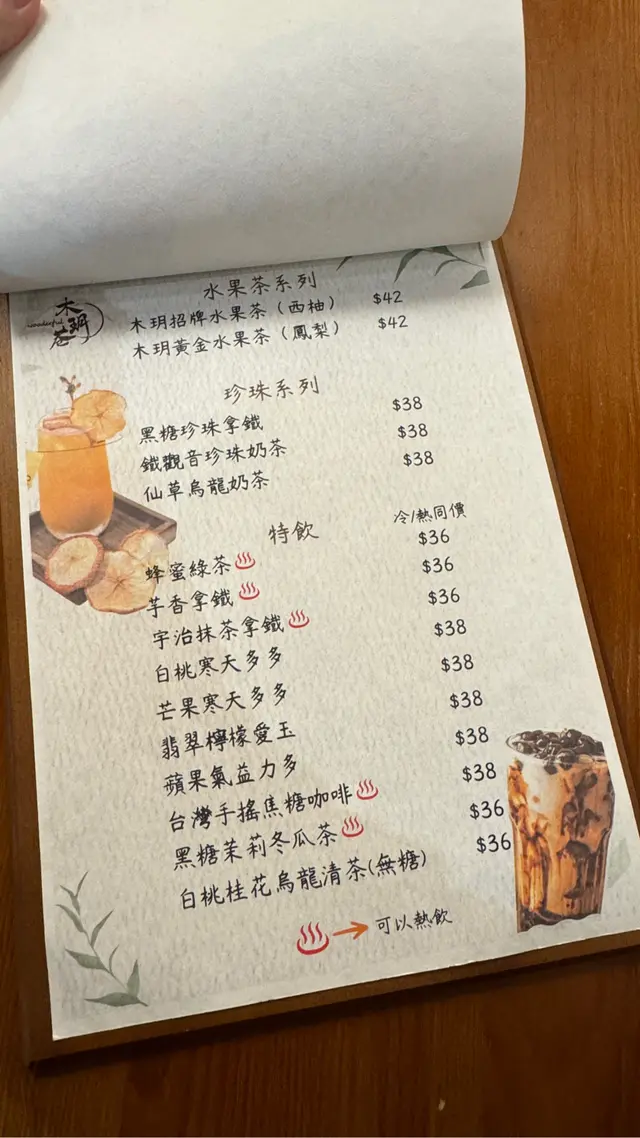 木玥茗
wooderful
水果茶系列
木玥招牌水果茶（西柚） $42
木玥黃金水果茶（鳳梨） $42
珍珠系列
黑糖珍珠拿鐵 $38
鐵觀音珍珠奶茶 $38
仙草烏龍奶茶 $38
特飲 冷/熱同價
蜂蜜綠茶 $36
芋香拿鐵 $36
宇治抹茶拿鐵 $36
白桃寒天多多 $38
芒果寒天多多 $38
翡翠檸檬愛玉 $38
蘋果氣益力多 $38
台灣手搖焦糖咖啡 $38
黑糖茉莉冬瓜茶 $36
白桃桂花烏龍清茶(無糖) $36
可以熱飲